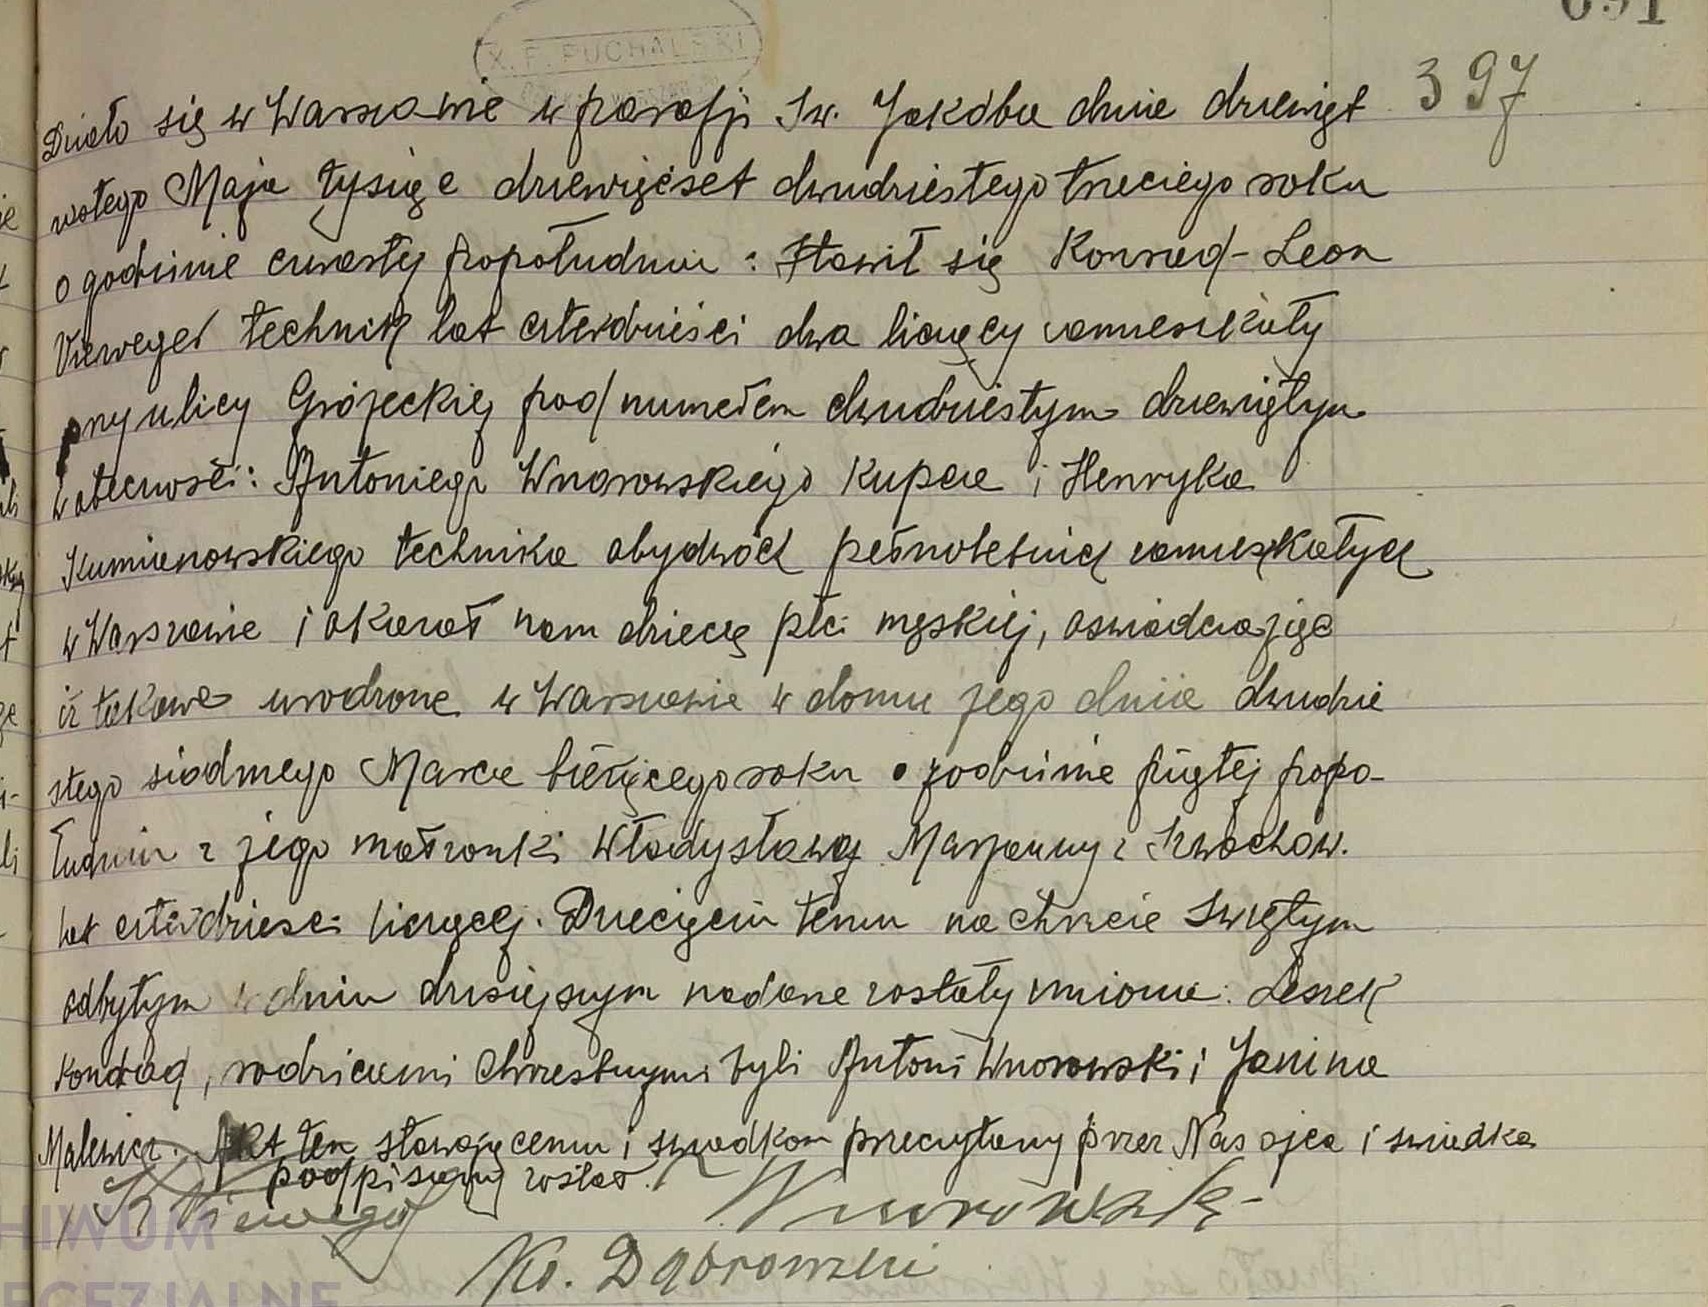 691
X. F. PUCHALSKI
397
Działo się w Warszawie w parafji Św. Jakóba dnia dziewięt
nastego Maja tysiąc dziewięćset dwudziestego trzeciego roku
o godzinie czwartej popołudniu: Stawił się Konrad-Leon
Vieweger technik lat czterdzieści dwa liczący zamieszkały
przy ulicy Grójeckiej pod numerem dwudziestym dziewiątym
w obecności: Antoniego Wnorowskiego kupca i Henryka
technika obydwóch pełnoletnich zamieszkałych
w Warszawie i okazał nam dziecię płci męskiej, oświadczając
iż takowe urodzone w Warszawie w domu jego dnia dwudzie
stego siódmego Marca bieżącego roku o godzinie piątej popo-
łudniu z jego małżonki Władysławy Marjanny z Szwochów.
lat czterdzieści liczącej. Dziecięciu temu na chrzcie Świętym
odbytym w dniu dzisiejszym nadane zostały imiona: Leszek
Konrad, rodzicami chrzestnymi byli Antoni Wnorowski i Janina
Malewicz. Akt ten stawającemu i świadkom przeczytany przez Nas ojca i świadka
podpisany został.
K Vieweger Wnorowski
Ks. Dąbrowski
HIWUM
ECEZJALNE